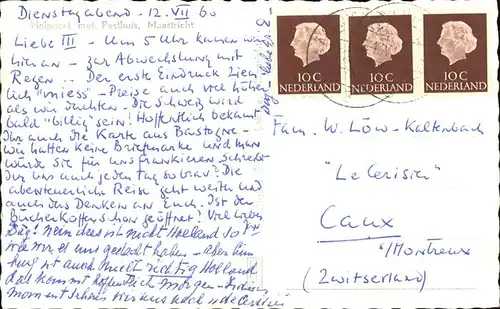 Dienstagabend - 12. VII 60
Helpoort met Pesthuis, Maastricht
Liebe III - Um 5 Uhr kamen wir
hier an - zur Abwechslung mit
Regen.. Der erste Eindruck ziem
lich "miess" - Preise auch viel höher
als wir dachten. Die Schweiz wird
bald "billig" sein! Hoffentlich bekamt
Ihr auch die Karte aus Bastogne -
wir hatten keine Briefmarke und man
würde sie für uns frankieren. Schreibt
Ihr uns auch jeden Tag so brav? Die
abenteuerliche Reise geht weiter und
auch das Denken an Euch. Ist der
Bücherkoffer schon geöffnet? Viel liebes
Nein das ist nicht Holland so
wie wir es uns gedacht haben - aber
ist auch nicht richtig Holland
das kommt hoffentlich morgen -
moment
10 C
NEDERLAND
10 C
NEDERLAND
10 C
NEDERLAND
Fam. W. Löw-Kaltenbach
"Le Cerisier"
Caux
s/Montreux
(Zwitserland)